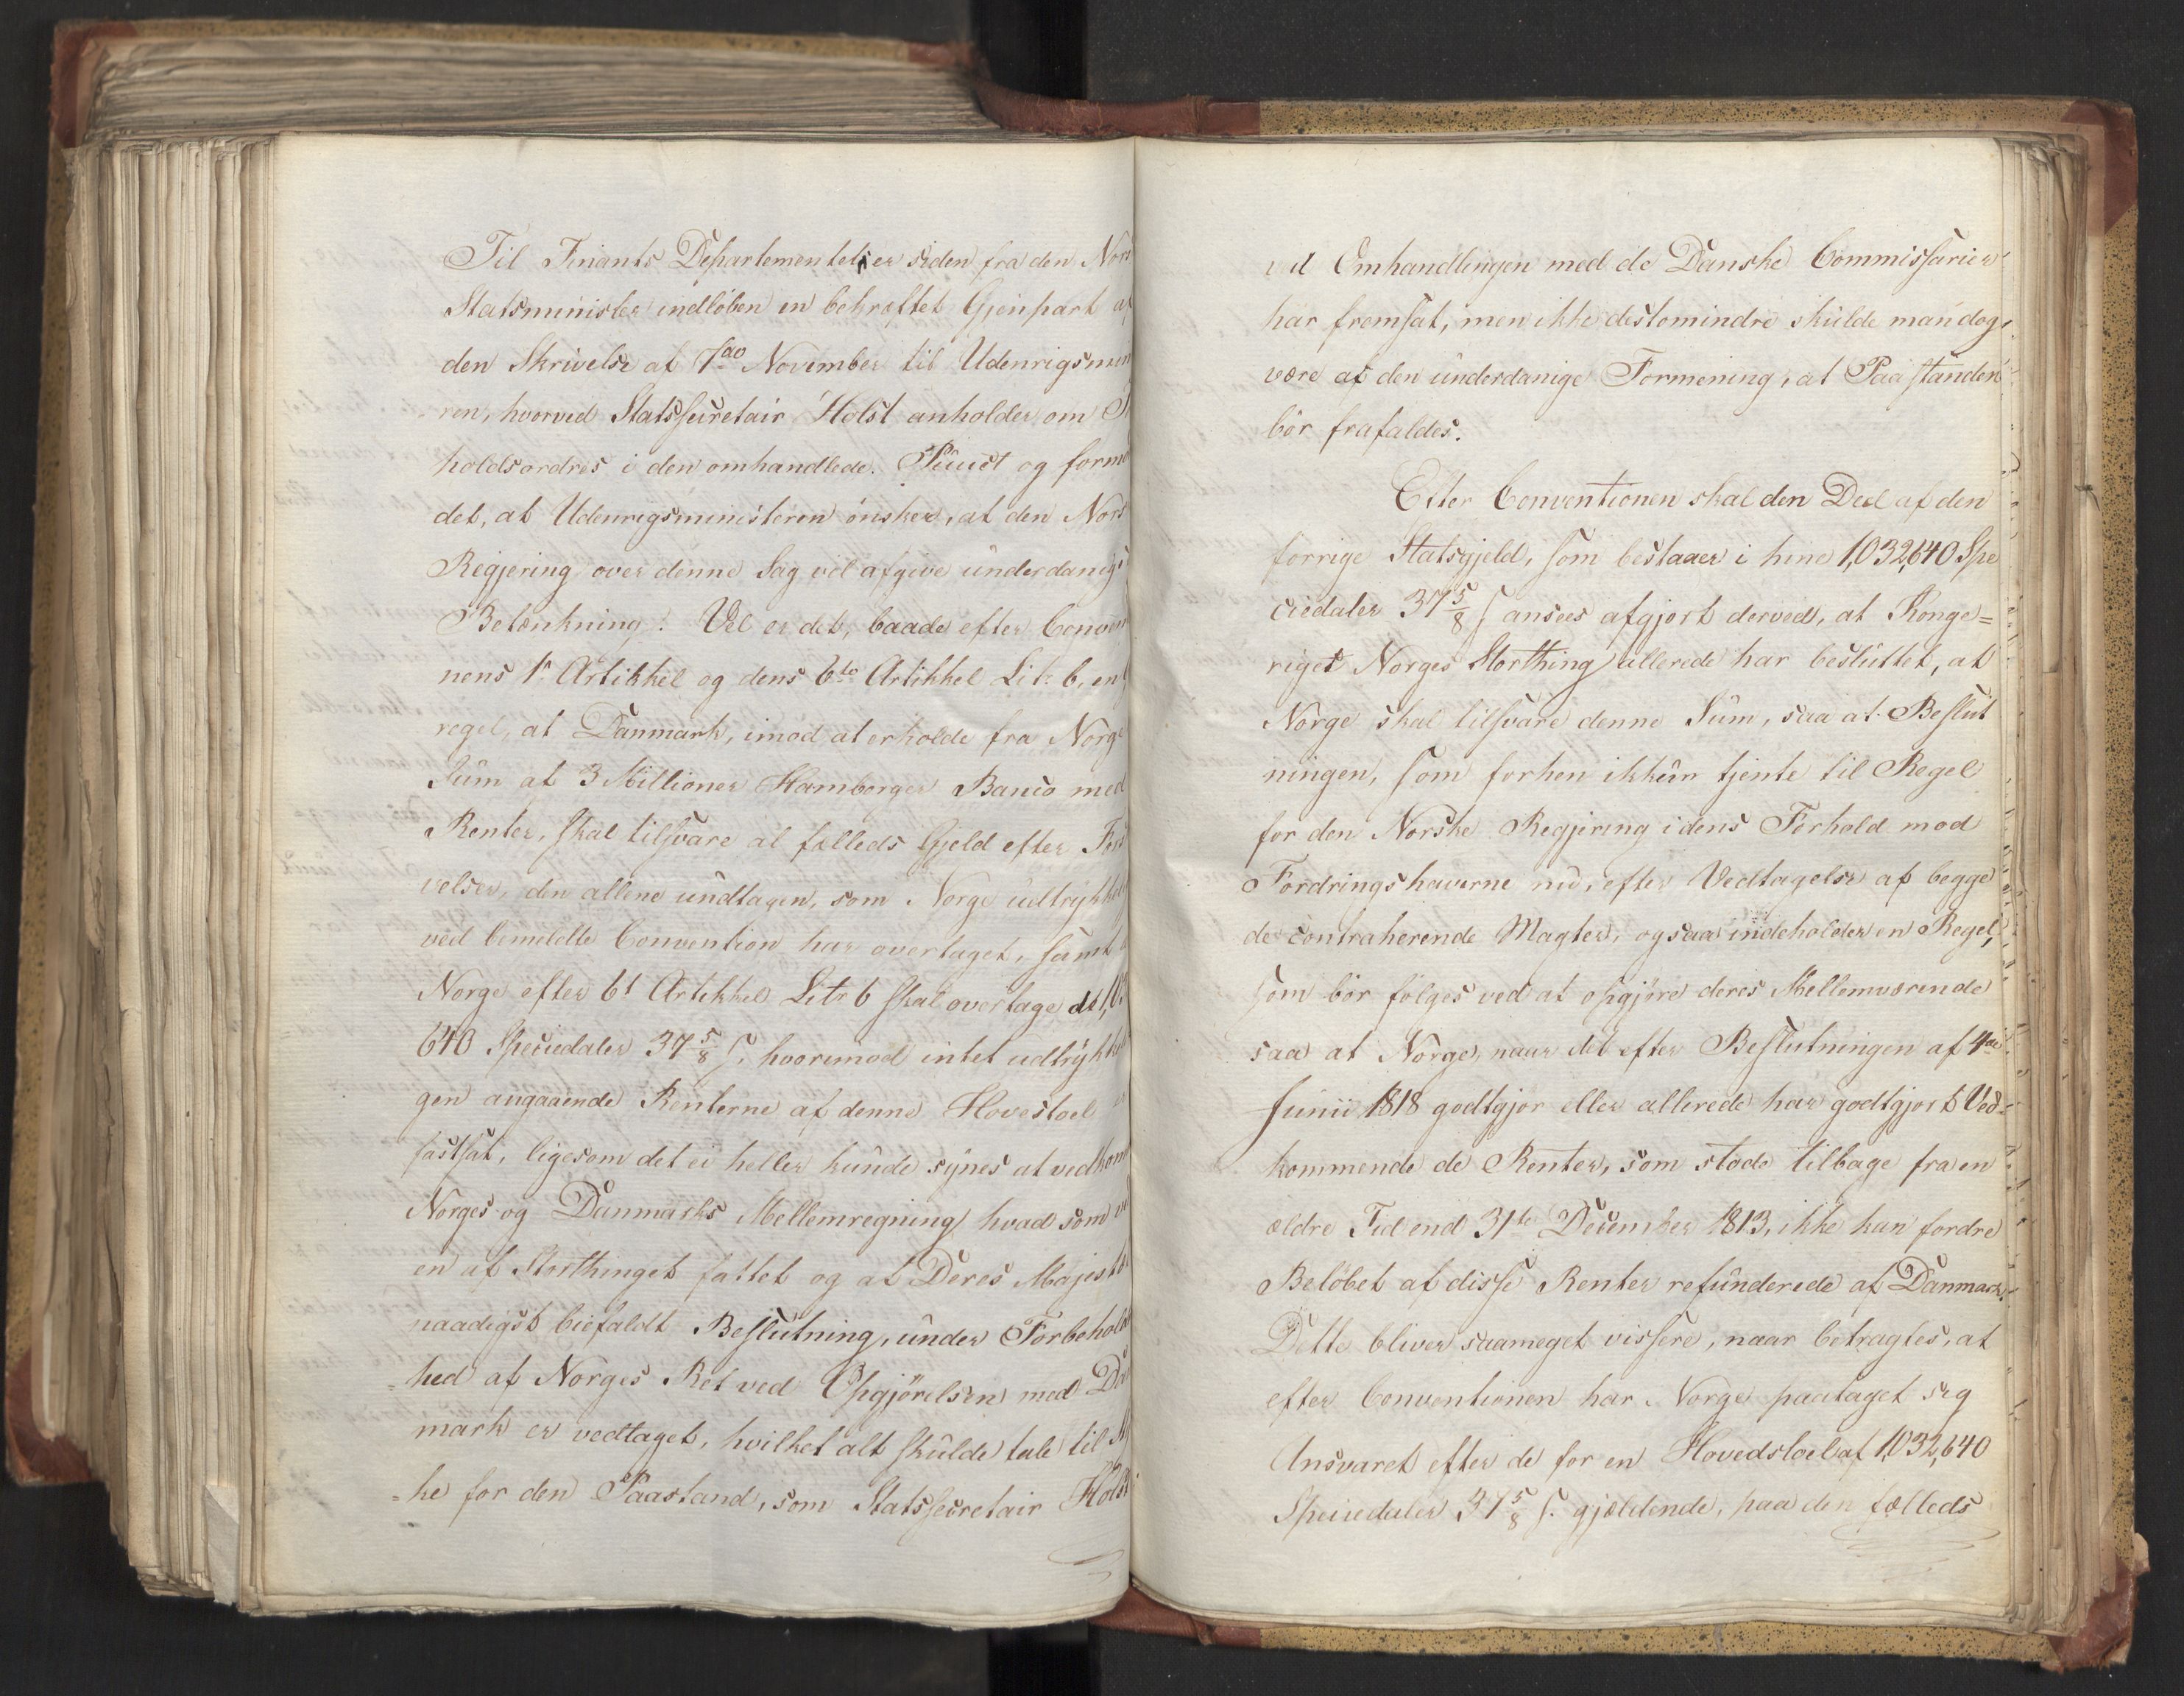 Til Finants Departementet er siden fra den Nor
Statsminister indløben en bekræftet Gjenpart af
den Skrivelse af 7de November til Udenrigsmin
ren, hvorved Statssecretair Holst anholder om
holdsordres i den omhandlede Punct og forme
det, at Udenrigsministeren ønsker, at den Nors
Regjering over denne Sag vil afgive underdanigs
Betænkning. Vel er det, baade efter Conven
nens 1ste Artikkel og dens 6te Artikkel Litr b, en
regel, at Danmark, imod at erholde fra Norge
Sum af 3 Millioner Hamborger Banco med
Renter, skal tilsvare al fælleds Gjeld efter For
velser, den allene undtagen, som Norge udtrykkel
ved bemeldte Convention har overtaget, samt
Norge efter 6t Artikkel Litr b skal overtage de 1,03
640 Speciedaler 37 5/8 ſ, hvorimod intet udtrykke
gen angaaende Renterne af denne Hovestoel
fastsat, ligesom det ei heller kunde synes at vedkom
Norges og Danmarks Mellemregning hvad som
en af Storthinget fattet og at Deres Majestæ
naadigst biefaldt Beslutning, under Forbehold
hed af Norges Ret ved Opgjørelsen med Da
mark er vedtaget, hvilket alt skulde tale til
ke for den Paastand, som Statssecretair Holst
ved Omhandlingen med de Danske Commissarier
har fremsat, men ikke destomindre skulde man dog
være af den underdanige Formening, at Paastanden
bør frafaldes.
Efter Conventionen skal den Deel af den
forrige Statsgjeld, som bestaaer i hine 1,032,640 Spe
ciedaler 37 5/8 ſ ansees afgjort derved, at Konge=
riget Norges Storthing allerede har besluttet, at
Norge skal tilsvare denne Sum, saa at Beslut
ningen, som forhen ikkun tjente til Regel
for den Norske Regjering i dens Forhold mod
Fordringshaverne nu, efter Vedtagelse af begge
de contraherende Magter, ogsaa indeholder en Regel,
som bør følges ved at opgjøre deres Mellemværende
saa at Norge, naar det efter Beslutningen af 4de
Junii 1818 godtgjør eller allerede har godtgjort Ved=
kommende de Renter, som stode tilbage fra en
ældre Tid end 31te December 1813, ikke kan fordre
Beløbet af disse Renter refunderede af Danmark.
Dette bliver saameget vissere, naar betragtes, at
efter Conventionen har Norge paataget sig
Ansvaret efter de for en Hovedstoel af 1,032,640
Speciedaler 37 5/8 ſ. gjældende, paa den fælleds